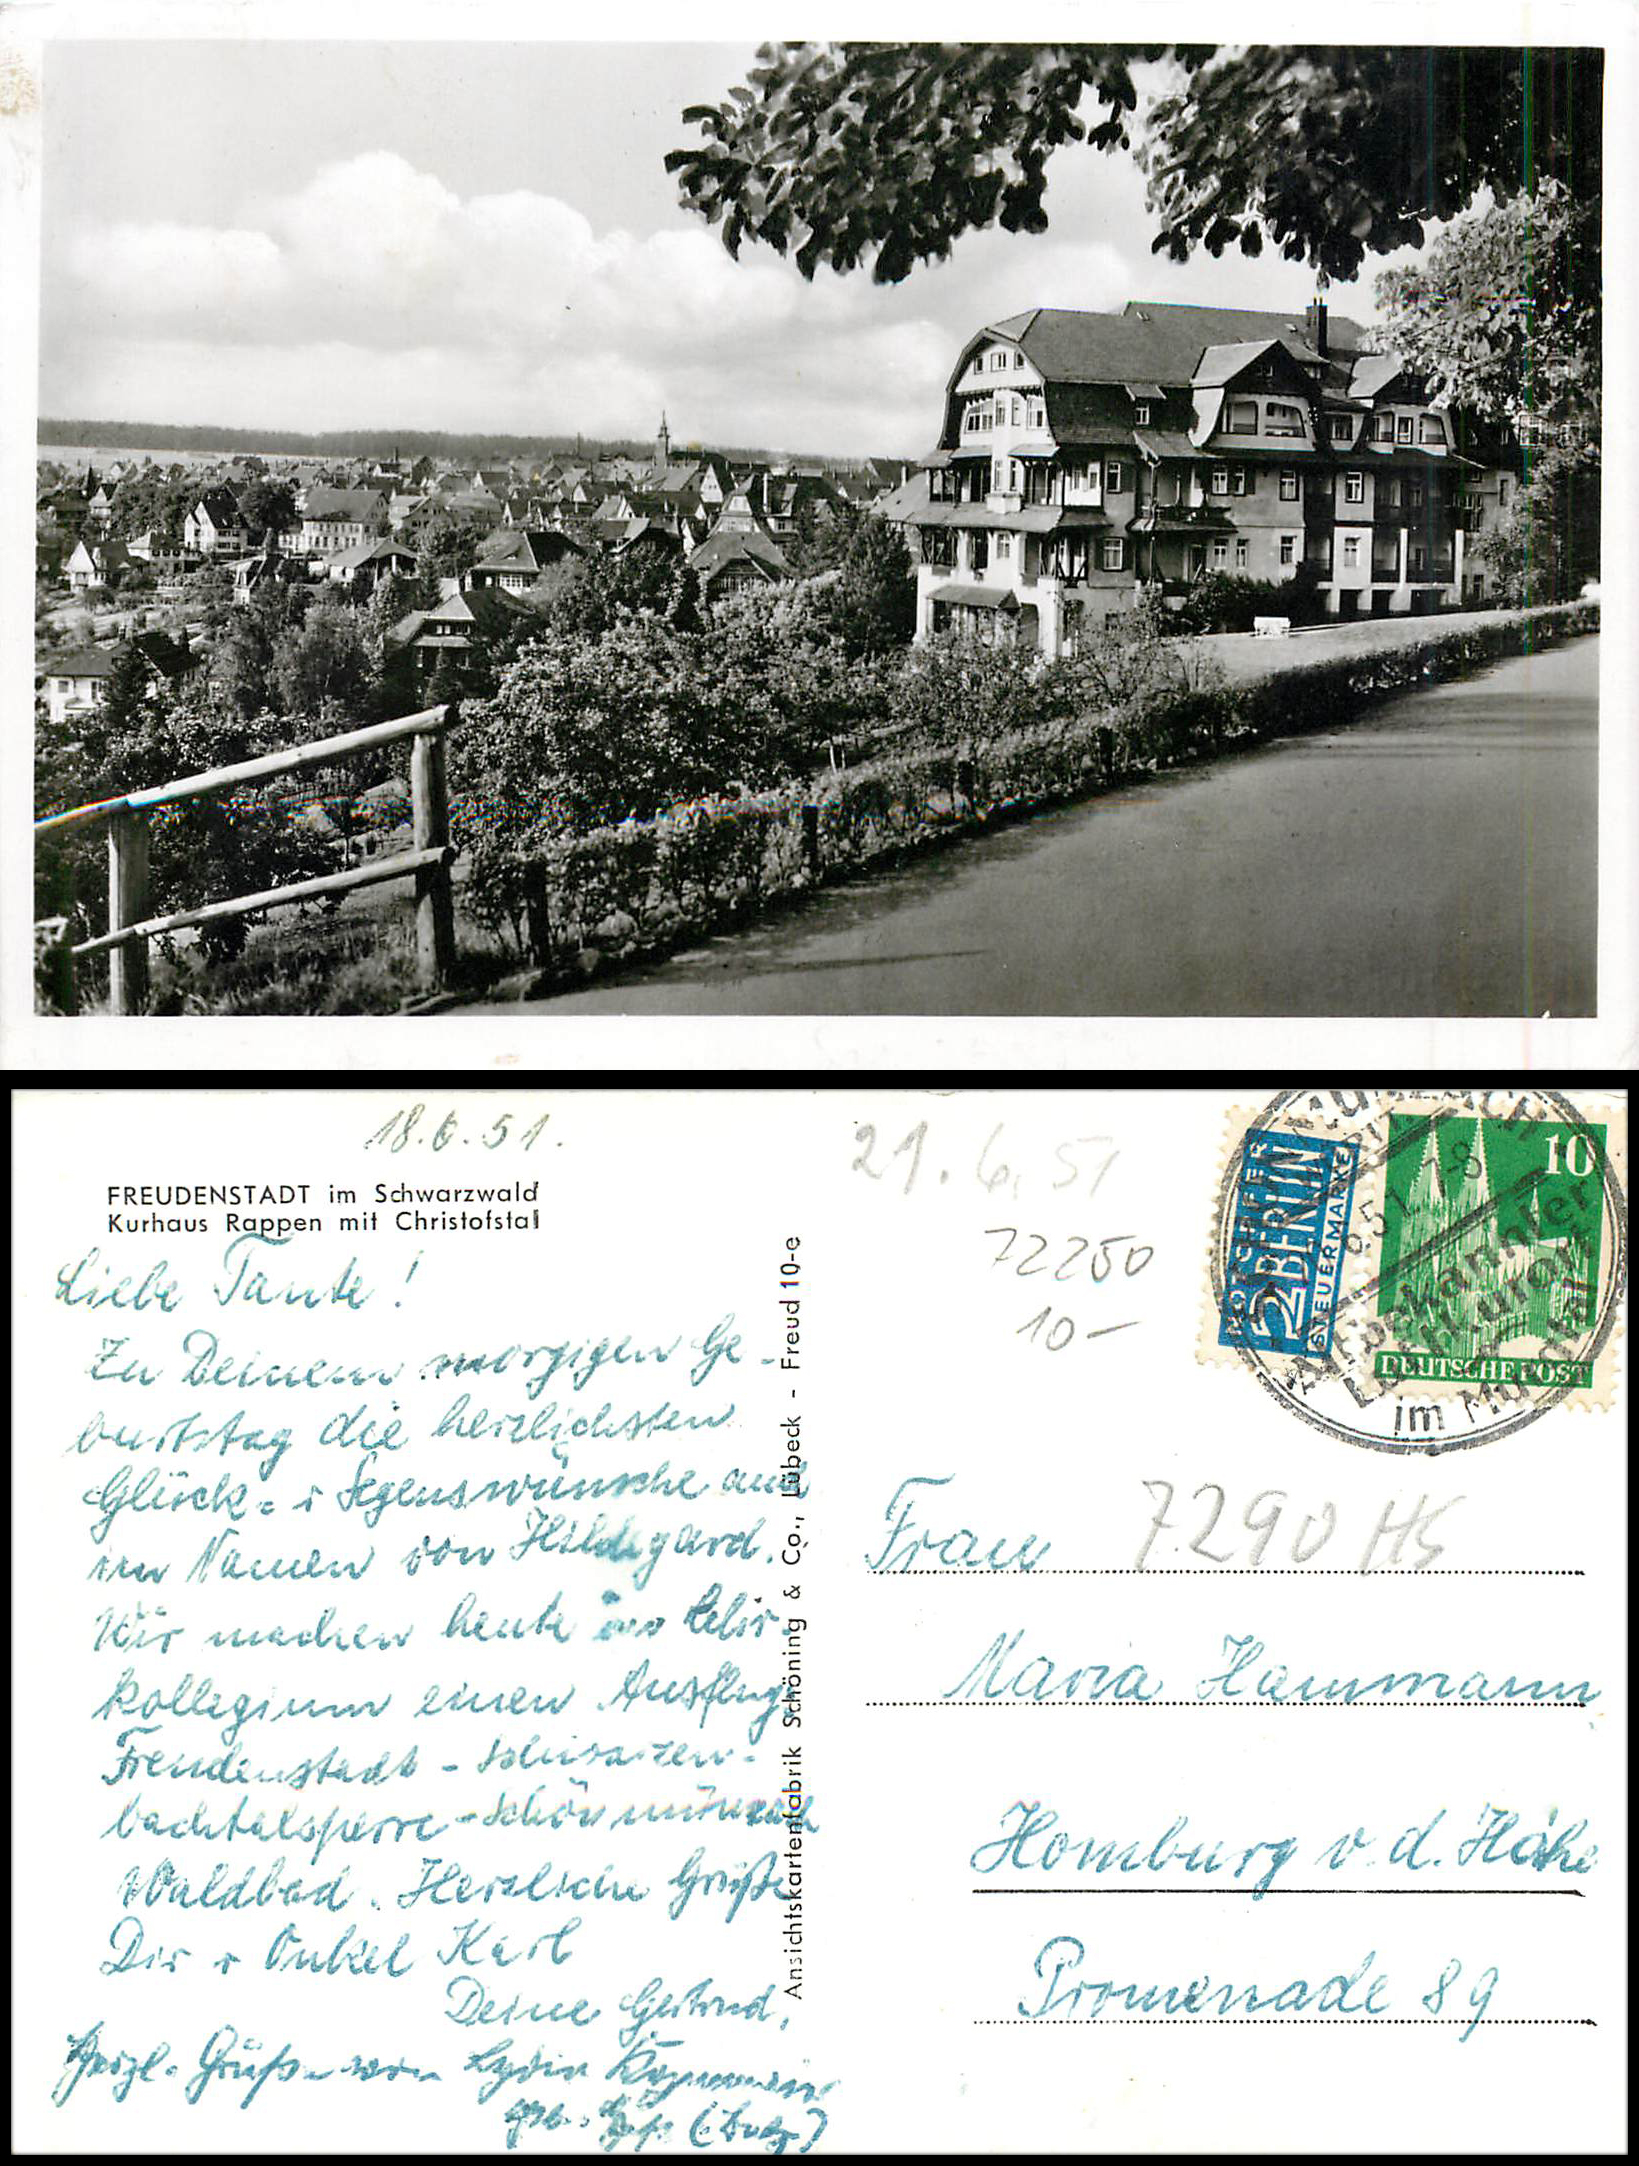 18.6.51.
FREUDENSTADT im Schwarzwald
Kurhaus Rappen mit Christofstal
Liebe Tante!
Zu Deinem morgigen Ge-
burtstag die herzlichsten
Glück- u Segenswünsche auch
im Namen von Hildegard.
Wir machen heute im Lehr-
kollegium einen Ausflug
Freudenstadt - Schwarzen-
bachtalsperre - Schönmünzach
Waldbad. Herzliche Grüße
Dir u Onkel Karl
Deine Gertrud,
Herzl. Grüße von Lydia
geb.
Ansichtskartenfabrik Schöning & Co., Lübeck - Freud 10-e
21.6.51
72250
10-
NOTOPFER
2 BERLIN
STEUERMARKE
10
DEUTSCHE POST
6.51. 7-8
Altbekannter
Luftkurort
im Murgtal
Frau
7290 HS
Maria Hammann
Homburg v. d. Höhe
Promenade 89